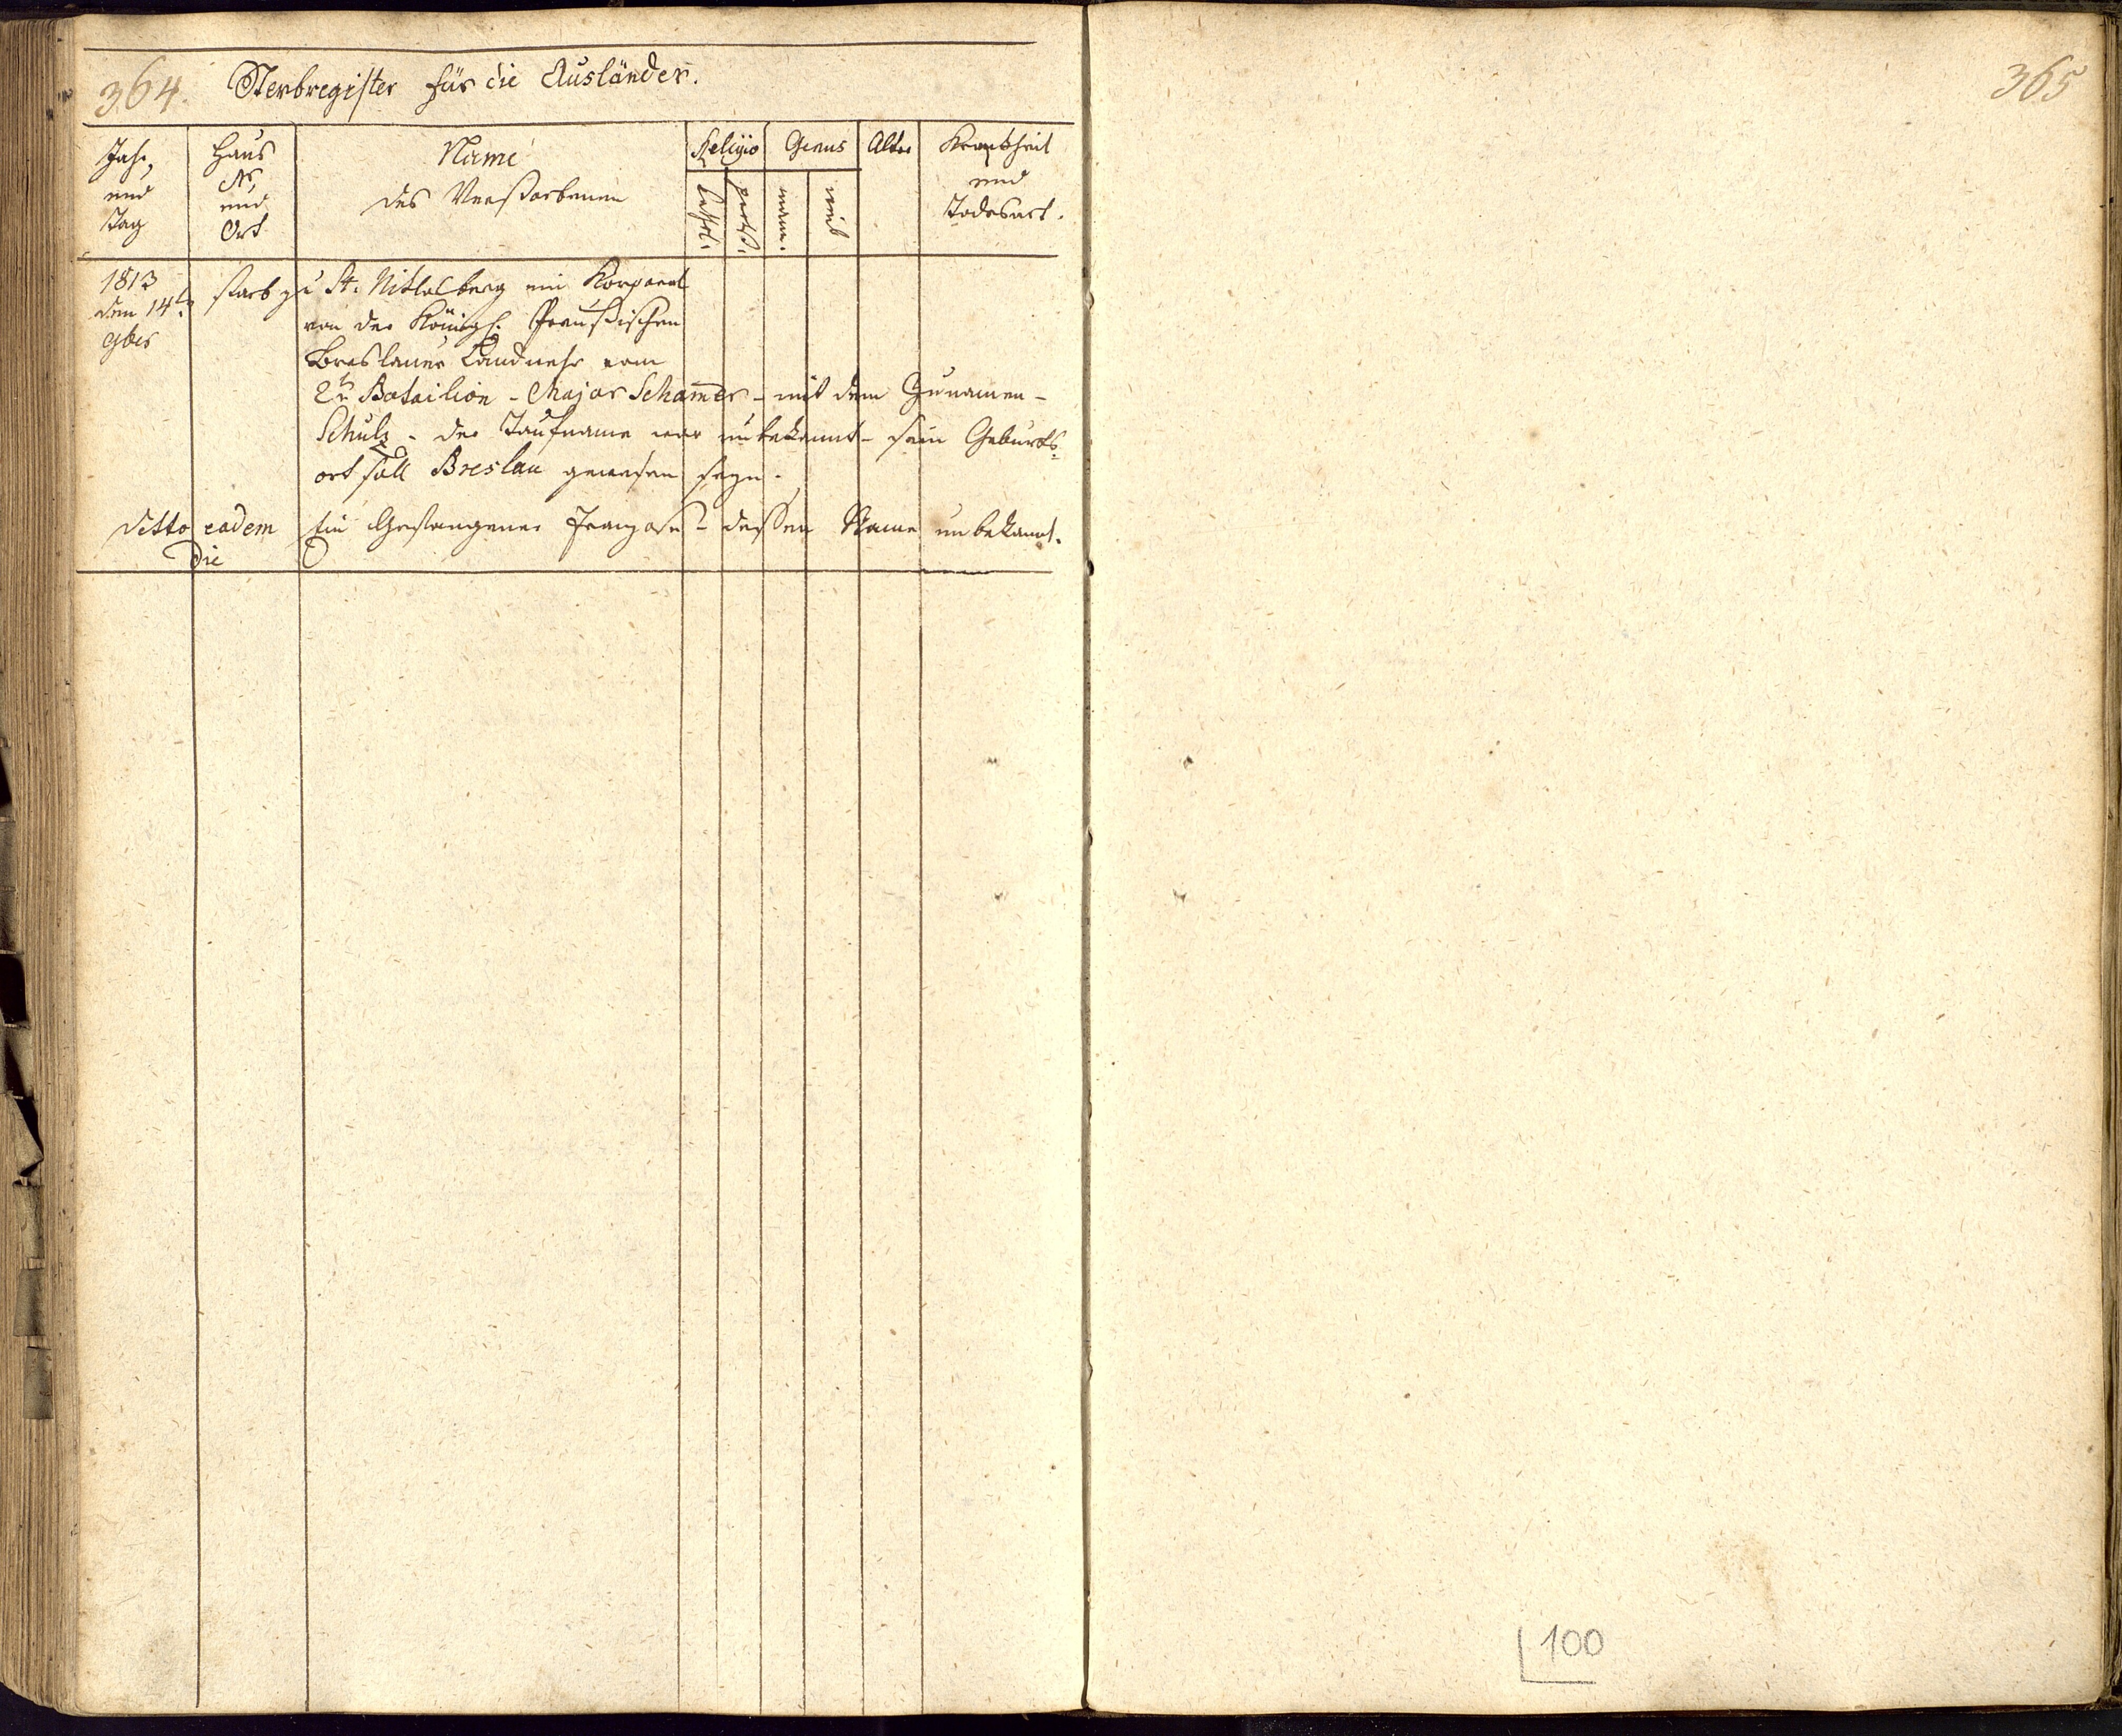 364. Sterbregister für die Ausländer.
Jahr, und Tag
Haus Nr, und Ort
Name des Verstorbenen
Religio
kathol.
protest.
Genus
mann.
weib
Alter
Krankheit und Todesart.
1813 den 14t 9ber
starb zu St. Niklasberg ein Korporal
von der Königl. Preußischen
Breslauer Landwehr vom
2tn Batailion - Major Schamer - mit dem Zunamen -
Schulz - der Taufname war unbekannt - sein Geburts-
ort soll Breslau gewesen seyn.
detto eadem die
Ein Gefangener Franzose - dessen Name unbekannt.
365
100